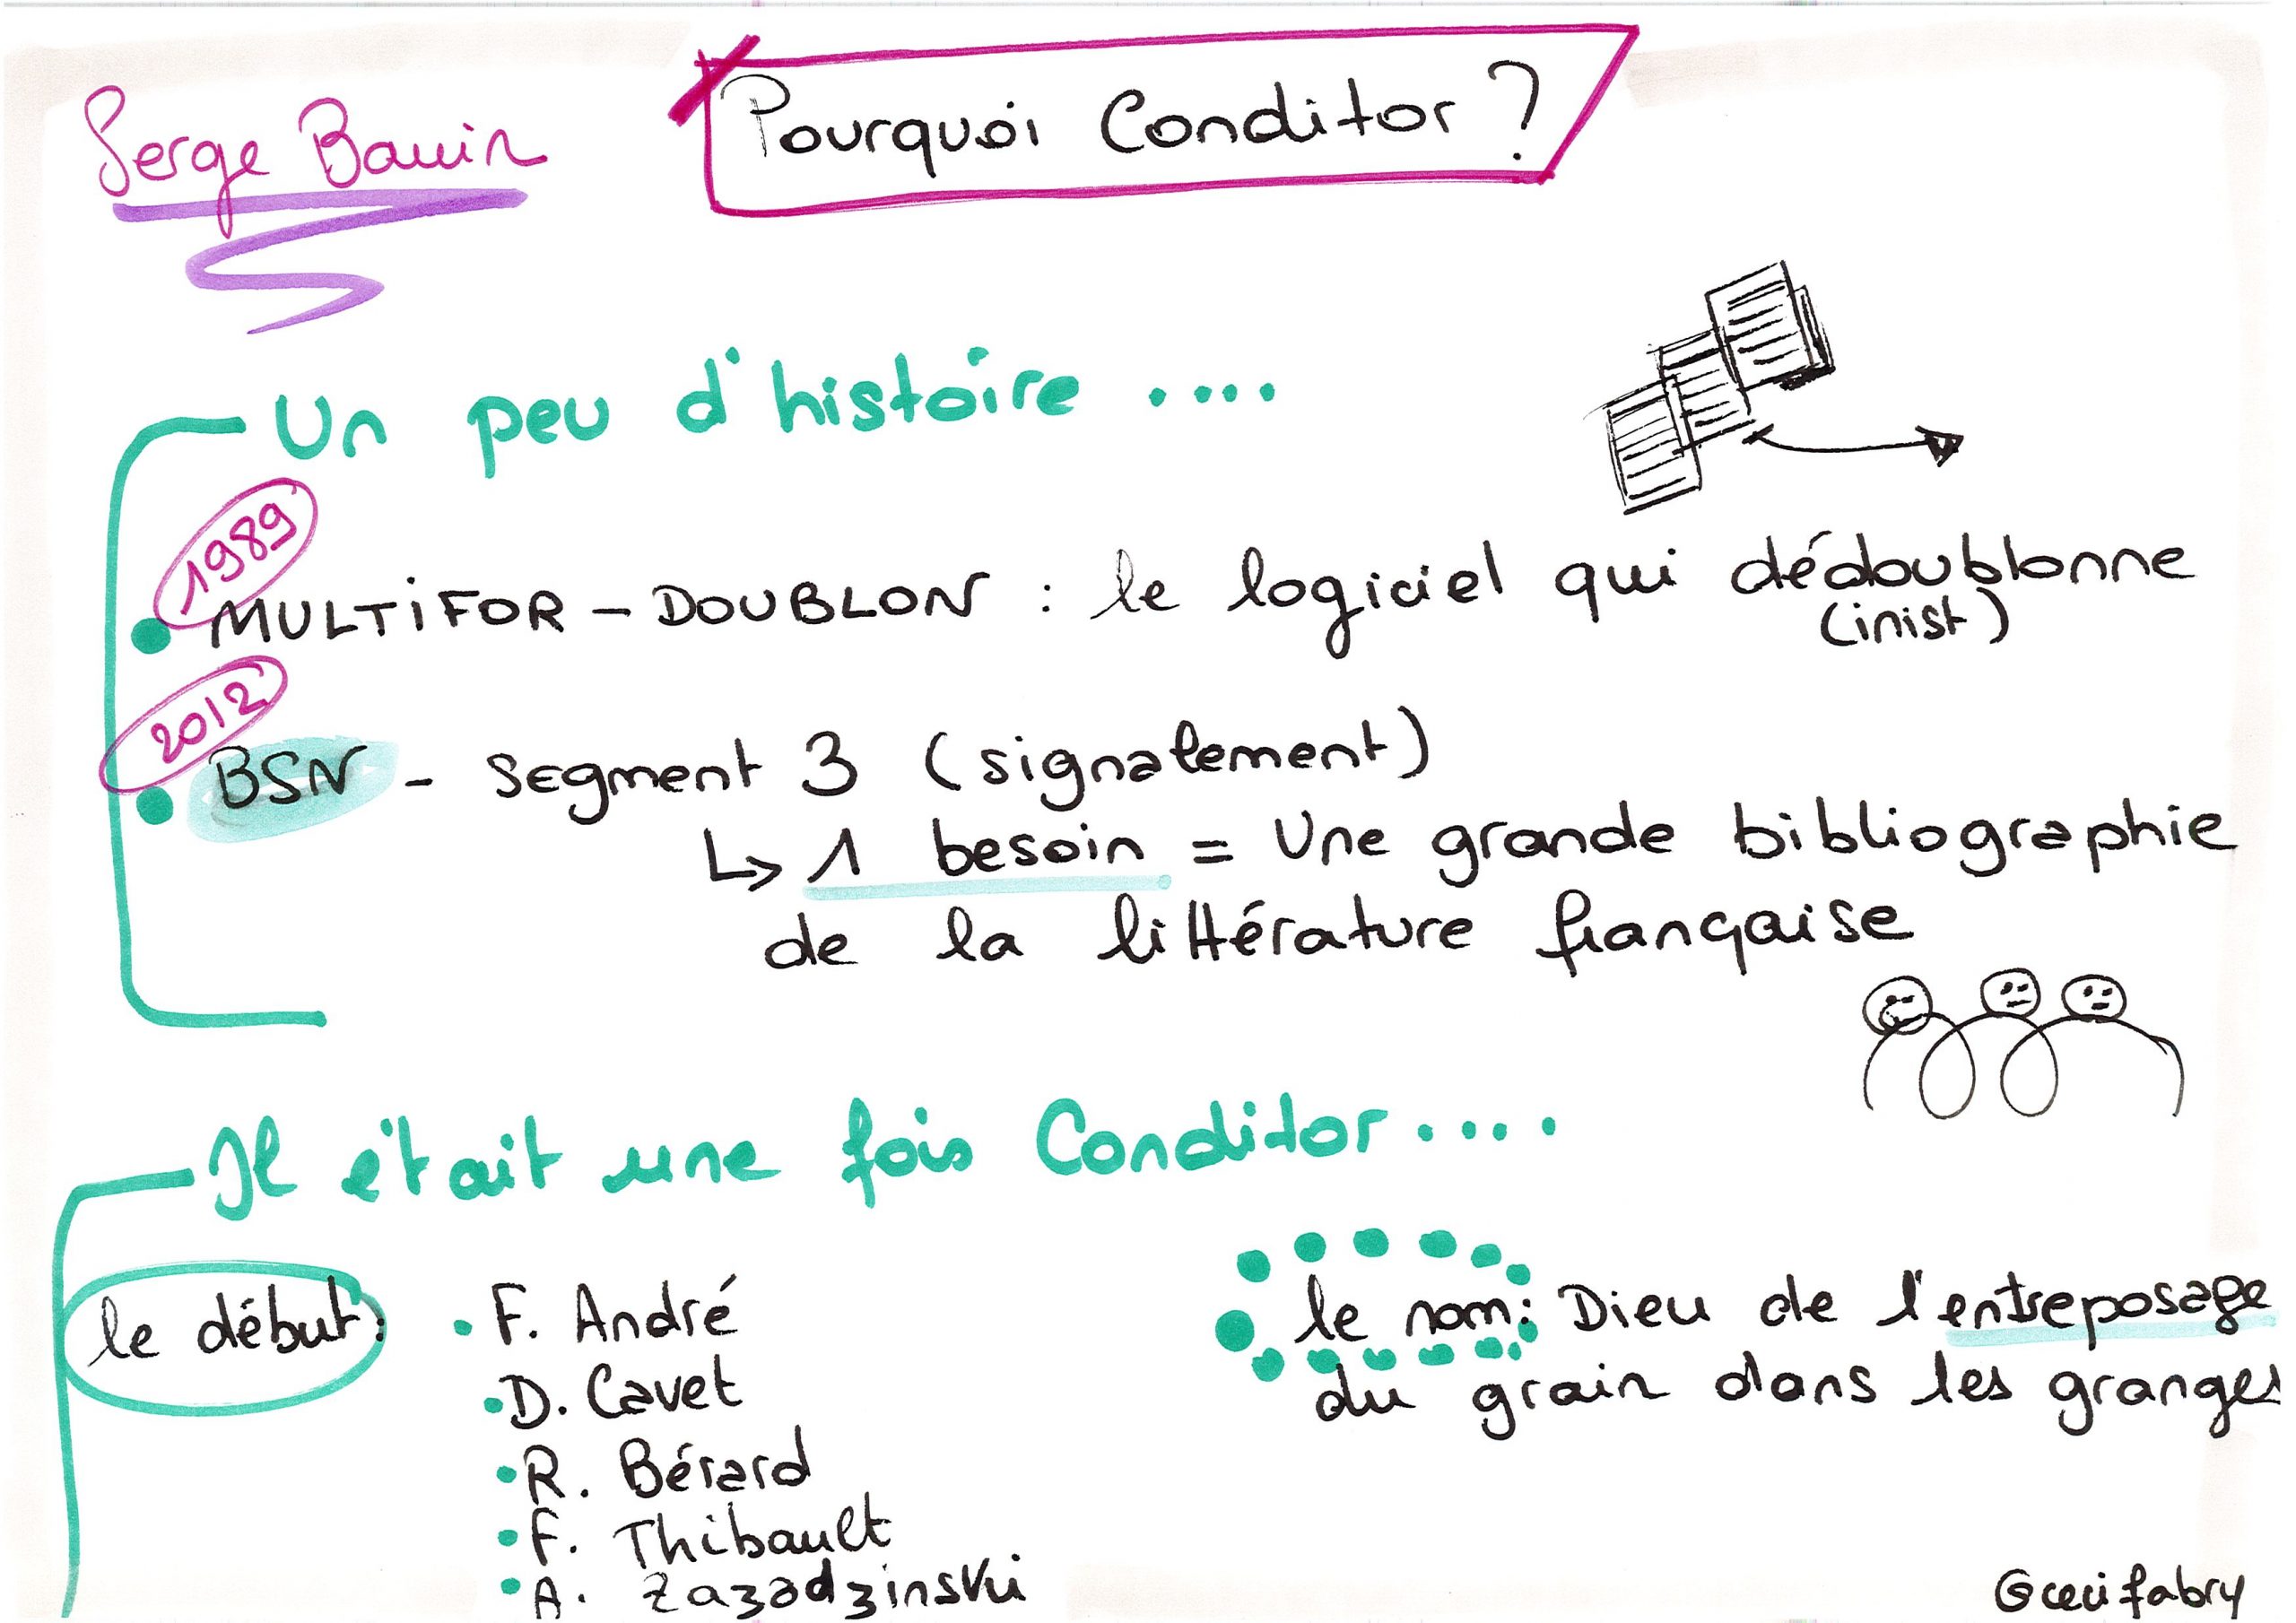 Serge Bauin
Pourquoi Conditor ?
Un peu d'histoire ....
1989
MULTIFOR - DOUBLON : le logiciel qui dédoublonne
(inist)
2012
BSN - segment 3 (signalement)
↳ 1 besoin = Une grande bibliographie
de la littérature française
Il était une fois Conditor ....
le début :
• F. André
• D. Cavet
• R. Bérard
• F. Thibault
• A. Zazadzinski
le nom : Dieu de l'entreposage
du grain dans les granges